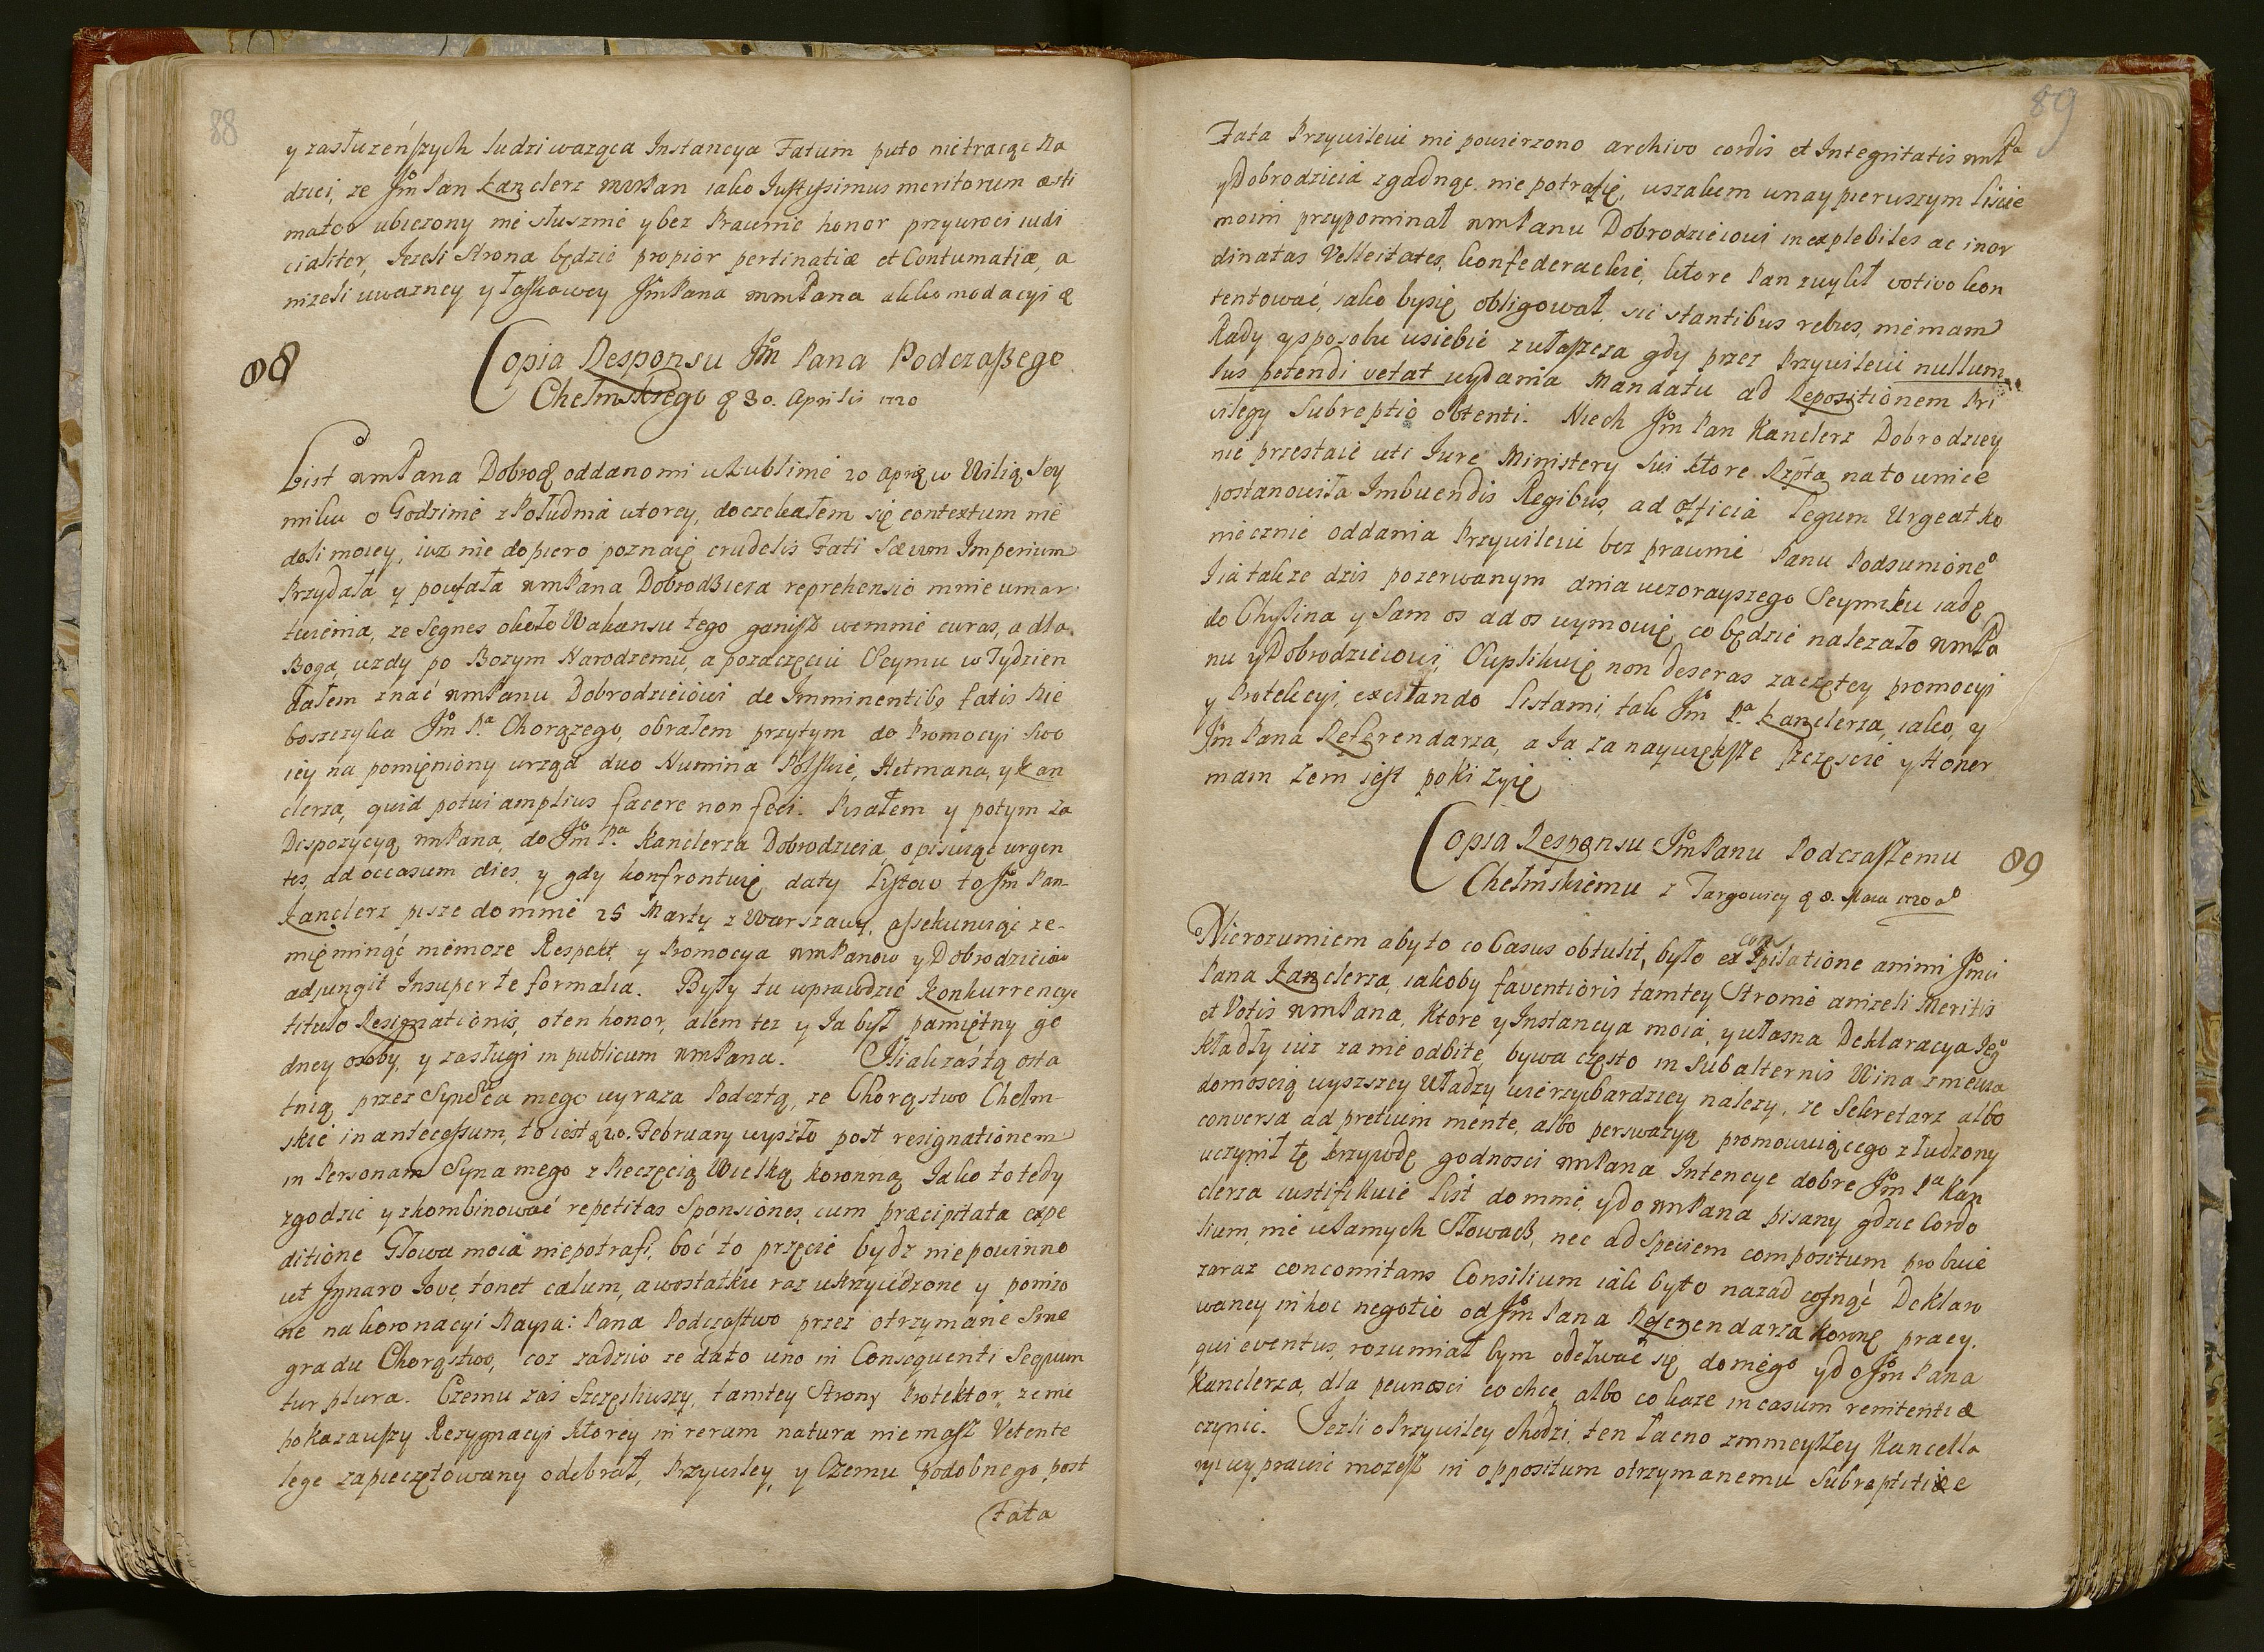 88
y zasłużeńszych ludzi ważąca Instancya Fatum puto nietracąc Na
dziei, że Jm̊ Pan Kanclerz mm Pan iako Justissimus meritorum æsti
mator ubieżony nie słusznie y bez Prawnie honor przywroci iudi
cialiter, Jeżeli Strona będzie propior pertinatiæ et Contumatiæ, a
niżeli uważney y łaskawey Jm̊ Pana mm Pana akkomodacyi
88
Copia Responsu Jm̊ Pana Podczaßego
Chełmskiego 30. Aprilis 1720
List wmPana Dobro oddano mi w Lublinie 20 Apr w Wilią Sey
miku o Godzinie z Południa wtorey, doczekałem się contextum nie
doli moiey, iuż nie dopiero poznaię crudelis Fati Sævum Imperium
Przydała y poufała wmPana Dobrodzieia reprehensio mnie umar
twienia, że Segnes około Wakansu tego ganisz wemnie curas, a dla
Boga, wzdy po Bozym Narodzeniu, a pozaczęciu Seymu w Tydzien
dałem znać wmPanu Dobrodzieiowi de Imminentibs fatis Nie
boszczyka Jm̊ Pa Chorążego, obrałem przytym do Promocyi Swo
iey na pomięniony urząd duo Numina Polskie, Hetmana, y Kan
clerza, quid potui amplius facere non feci. Pisałem y potym za
Dispozycyą wmPana, do Jm̊ Pa Kanclerza Dobrodzieia, opisuiąc urgen
tes, ad occasum dies, y gdy konfrontuię daty Lystow to Jm̊ Pan
Kanclerz pisze do mnie 25 Marty z Warszawy, assekuruiąc że
mię minąć niemoże Respekt, y Promocya wmPanow y Dobrodzieiow
adjungit Insuper te formalia. Były tu wprawdzie Konkurrencye
titulo Resignationis, o ten honor, alem też y Ja był pamiętny go
dney osoby, y zasługi in publicum wmPana. Jak zaś tą osta
tnią przez Synca mego wyraża Podcztą, że Chorąstwo Chełm
skie in antecessum, to iest 20. February wyszło post resignationem
in Personam Syna mego z Pieczęcią Wielką koronną Jako to tedy
zgodzić y zkombinować repetitas Sponsiones, cum præcipitata expe
ditione Głowa moia niepotrafi, boć to przęcie bydź niepowinno
ut Ignaro Jove, tonet cælum, a wostatku raz ukrzywdzone y poniżo
ne na koronacyi Nayia: Pana Podczastwo przez otrzymane Sine
gradu Chorąstwo, coż zadziw że dato uno in Consequenti Sequun
tur plura. Czemu zaś Szczęśliwszy, tamtey Strony Protektor, że nie
pokazawszy Rezygnacyi Ktorey in rerum natura nie masz Vetente
lege zapieczętowany odebrał, Przywiley, y Czemu podobnego post
Fata
89
Fata Przywileiu nie powierzono archivo cordis et Integritatis wmPa
y Dobrodzieia zgadnąć nie potrafię, wszakem w nay pierwszym liście
moim przypominał wmPanu Dobrodzieiowi inexplebiles ac inor
dinatas Velleitates, konfederackie, ktore Pan zwykł votivo kon
tentować, iako by się obligował, sic stantibus rebus, niemam
Rady y sposobu usiebie zwłaszcza gdy przez Przywileiu nullum
Ius petendi vetat wydania Mandatu ad Repositionem Pri
vilegy Subreptio obtenti. Niech Jm̊ Pan Kanclerz Dobrodziey
nie przestaie uti Iure Ministery Sui ktore Rzpta na to umiee
postanowiła Imbuendis Regibus, ad officia Legum Urgeat ko
niecznie oddania Przywileiu bez prawnie Panu Podsumione
I ia także dziś pozerwanym dnia wczorayszego Seymiku iadę
do Chyßina y Sam os ad os wymowię, co będzie należało wmPa
nu y Dobrodzieiowi, Suplikuię non deseras zaczętey promocyi
y Protekcyi, excitando listami, tak Jm̊ Pa Kanclerza, iako, y
Jm̊ Pana Referendarza, a Ja za naywiększe szczęscie y Honor
mam żem iest poki żyię
Copia Responsu Jm̊ Panu Podczaszemu 89
Chełmskiemu z Targowicy 8. Maia 1720
Nierozumiem aby to co Casus obtulit, było ex conspiratione animi Jmci
Pana Kanclerza, iakoby faventioris tamtey Stronie aniżeli Meritis
et Votis wmPana, Ktore y Instancya moia, y własna Deklaracya Jeo
kładły iuż za nie odbite, bywa często in Subalternis Wina z niewia
domoscią wyższey Władzy wierzyć bardziey należy, że Sekretarz albo
conversa ad pretium mente, albo perswazyą promowuiącego złudzony
uczynił tę krzywdę godnosci wmPana Intencye dobre Jm̊ Pa Kan
clerza iustifikuie list do mnie, y do wmPana pisany gdzie Cordo
lium, nie wsamych Słowach, nec ad Speciem compositum probuie
zaraz concomitans Consilium iak było nazad cofnąć Deklaro
waney in hoc negotio od Jm̊ Pana Referendarza koronę pracy,
qui eventus, rozumiał bym odezwać się do niego y do Jm̊ Pana
Kanclerza, dla pewnosci co chce, albo co każe in casum renitentiæ
czynić. Jeżli o Przywiley chodzi, ten łacno zmnieyszey Kancella
ryi wyprawić możesz in oppositum otrzymanemu Subreptitiæ